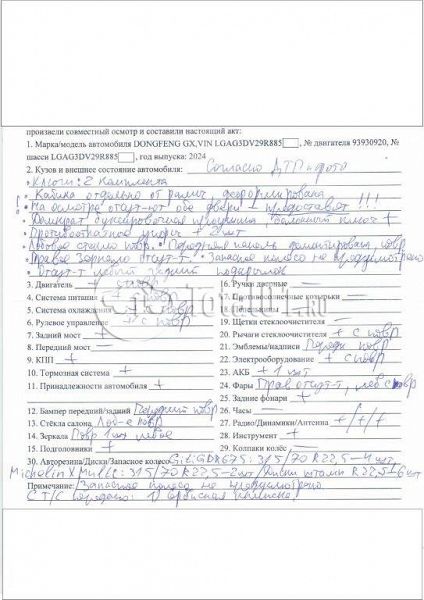 произвели совместный осмотр и составили настоящий акт:
1. Марка/модель автомобиля DONGFENG GX, VIN LGAG3DV29R885, № двигателя 93930920, №
шасси LGAG3DV29R885, год выпуска: 2024
2. Кузов и внешнее состояние автомобиля: Согласно ДТП и фото
• Ключи: 2 комплекта
• Кабина отдельно от рамы, деформирована
• На осмотре отсут-ют обе двери - предоставят!!!
• Домкрат буксировочная проушина балонный ключ +
• Противооткатные упоры + 2 шт
• Лобовое стекло повр. • Передняя панель демонтирована, повр
• Правое зеркало отсут-т. • Запасное колесо не предусмотрено
• Отсут-т левый задний подкрылок
3. Двигатель + с повр
4. Система питания +
5. Система охлаждения с повр
6. Рулевое управление + с повр
7. Задний мост +
8. Передний мост
9. КПП +
10. Тормозная система +
11. Принадлежности автомобиля +
12. Бампер передний/задний Передний повр
13. Стёкла салона Лоб-е повр
14. Зеркала Повр 1 шт левое
15. Подголовники +
16. Ручки дверные
17. Противосолнечные козырьки
18.
19. Щетки стеклоочистителя
20. Рычаги стеклоочистителя + с повр
21. Эмблемы/надписи Перед повр
22. Электрооборудование + с повр
23. АКБ + 1 шт
24. Фары Прав отсут-т, лев с повр
25. Задние фонари +
26. Часы
27. Радио/Динамики/Антенна +/+/+
28. Инструмент +
29. Колпаки колёс
30. Авторезина/Диски/Запасное колесо GiTi GDR675: 315/70 R22,5-4 шт
Michelin X Multi: 315/70 R22,5-2шт/Диски штамп R22,5-6 шт
Примечание: Запасное колесо не предусмотрено
С Т/С передано: 1) Сервисная книжка
TOTAL01.RU